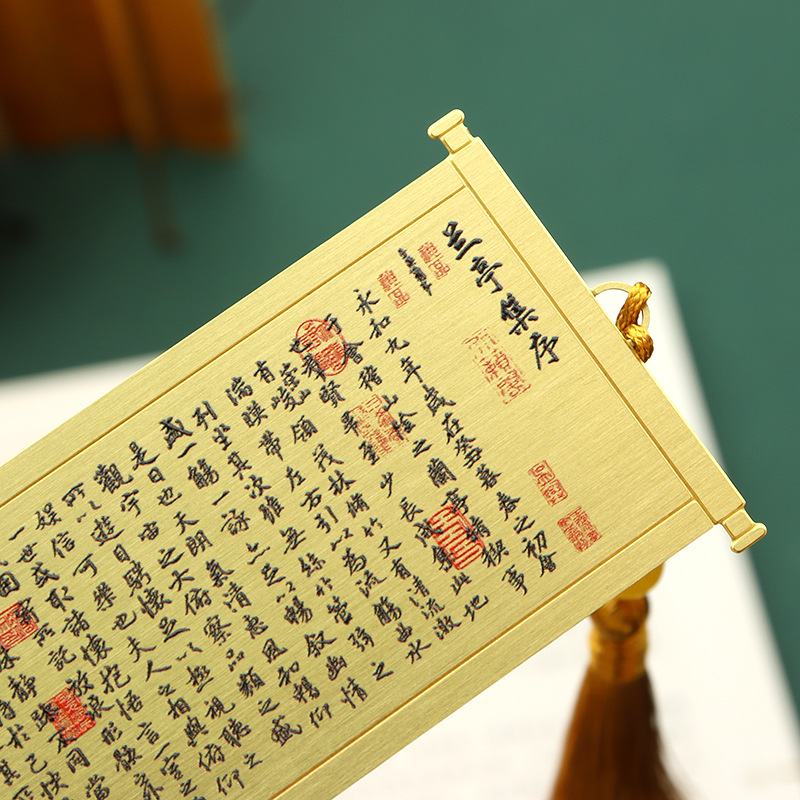 兰亭集序
永和九年歲在癸丑暮春之初會
于會稽山陰之蘭亭脩稧事
也羣賢畢至少長咸集此地
有崇山峻領茂林脩竹又有清流激
湍暎帶左右引以為流觴曲水
列坐其次雖無絲竹管弦之
盛一觴一詠亦足以暢敘幽情
是日也天朗氣清惠風和暢仰
觀宇宙之大俯察品類之盛
所以遊目騁懷足以極視聽之
娛信可樂也夫人之相與俯仰
一世或取諸懷抱悟言一室之
寄所託放浪形骸
静躁不同當
於己快